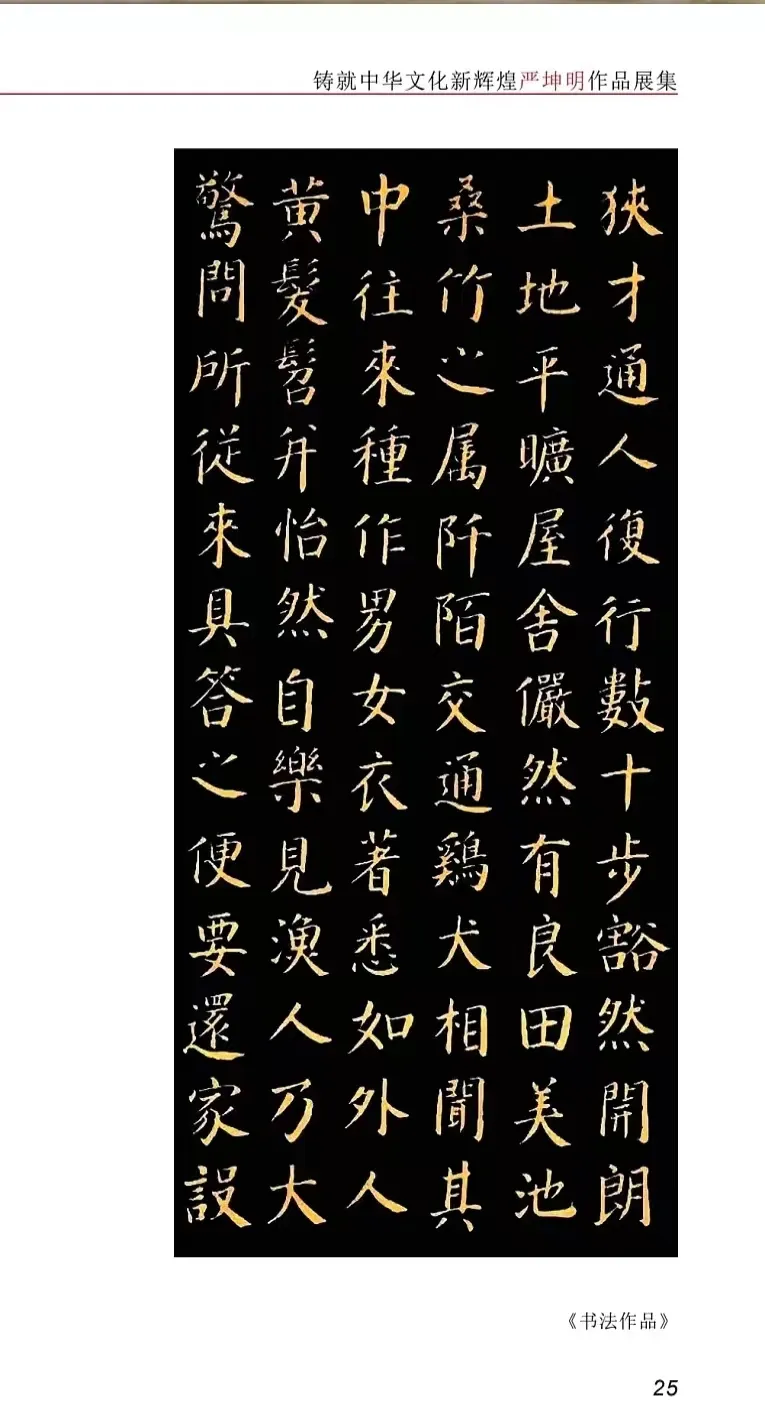 铸就中华文化新辉煌严坤明作品展集
狹才通人復行數十步豁然開朗
土地平曠屋舍儼然有良田美池
桑竹之属阡陌交通鷄犬相聞其
中往來種作男女衣著悉如外人
黄髮髫并怡然自樂見漁人乃大
驚問所從來具答之便要還家設
《书法作品》
25